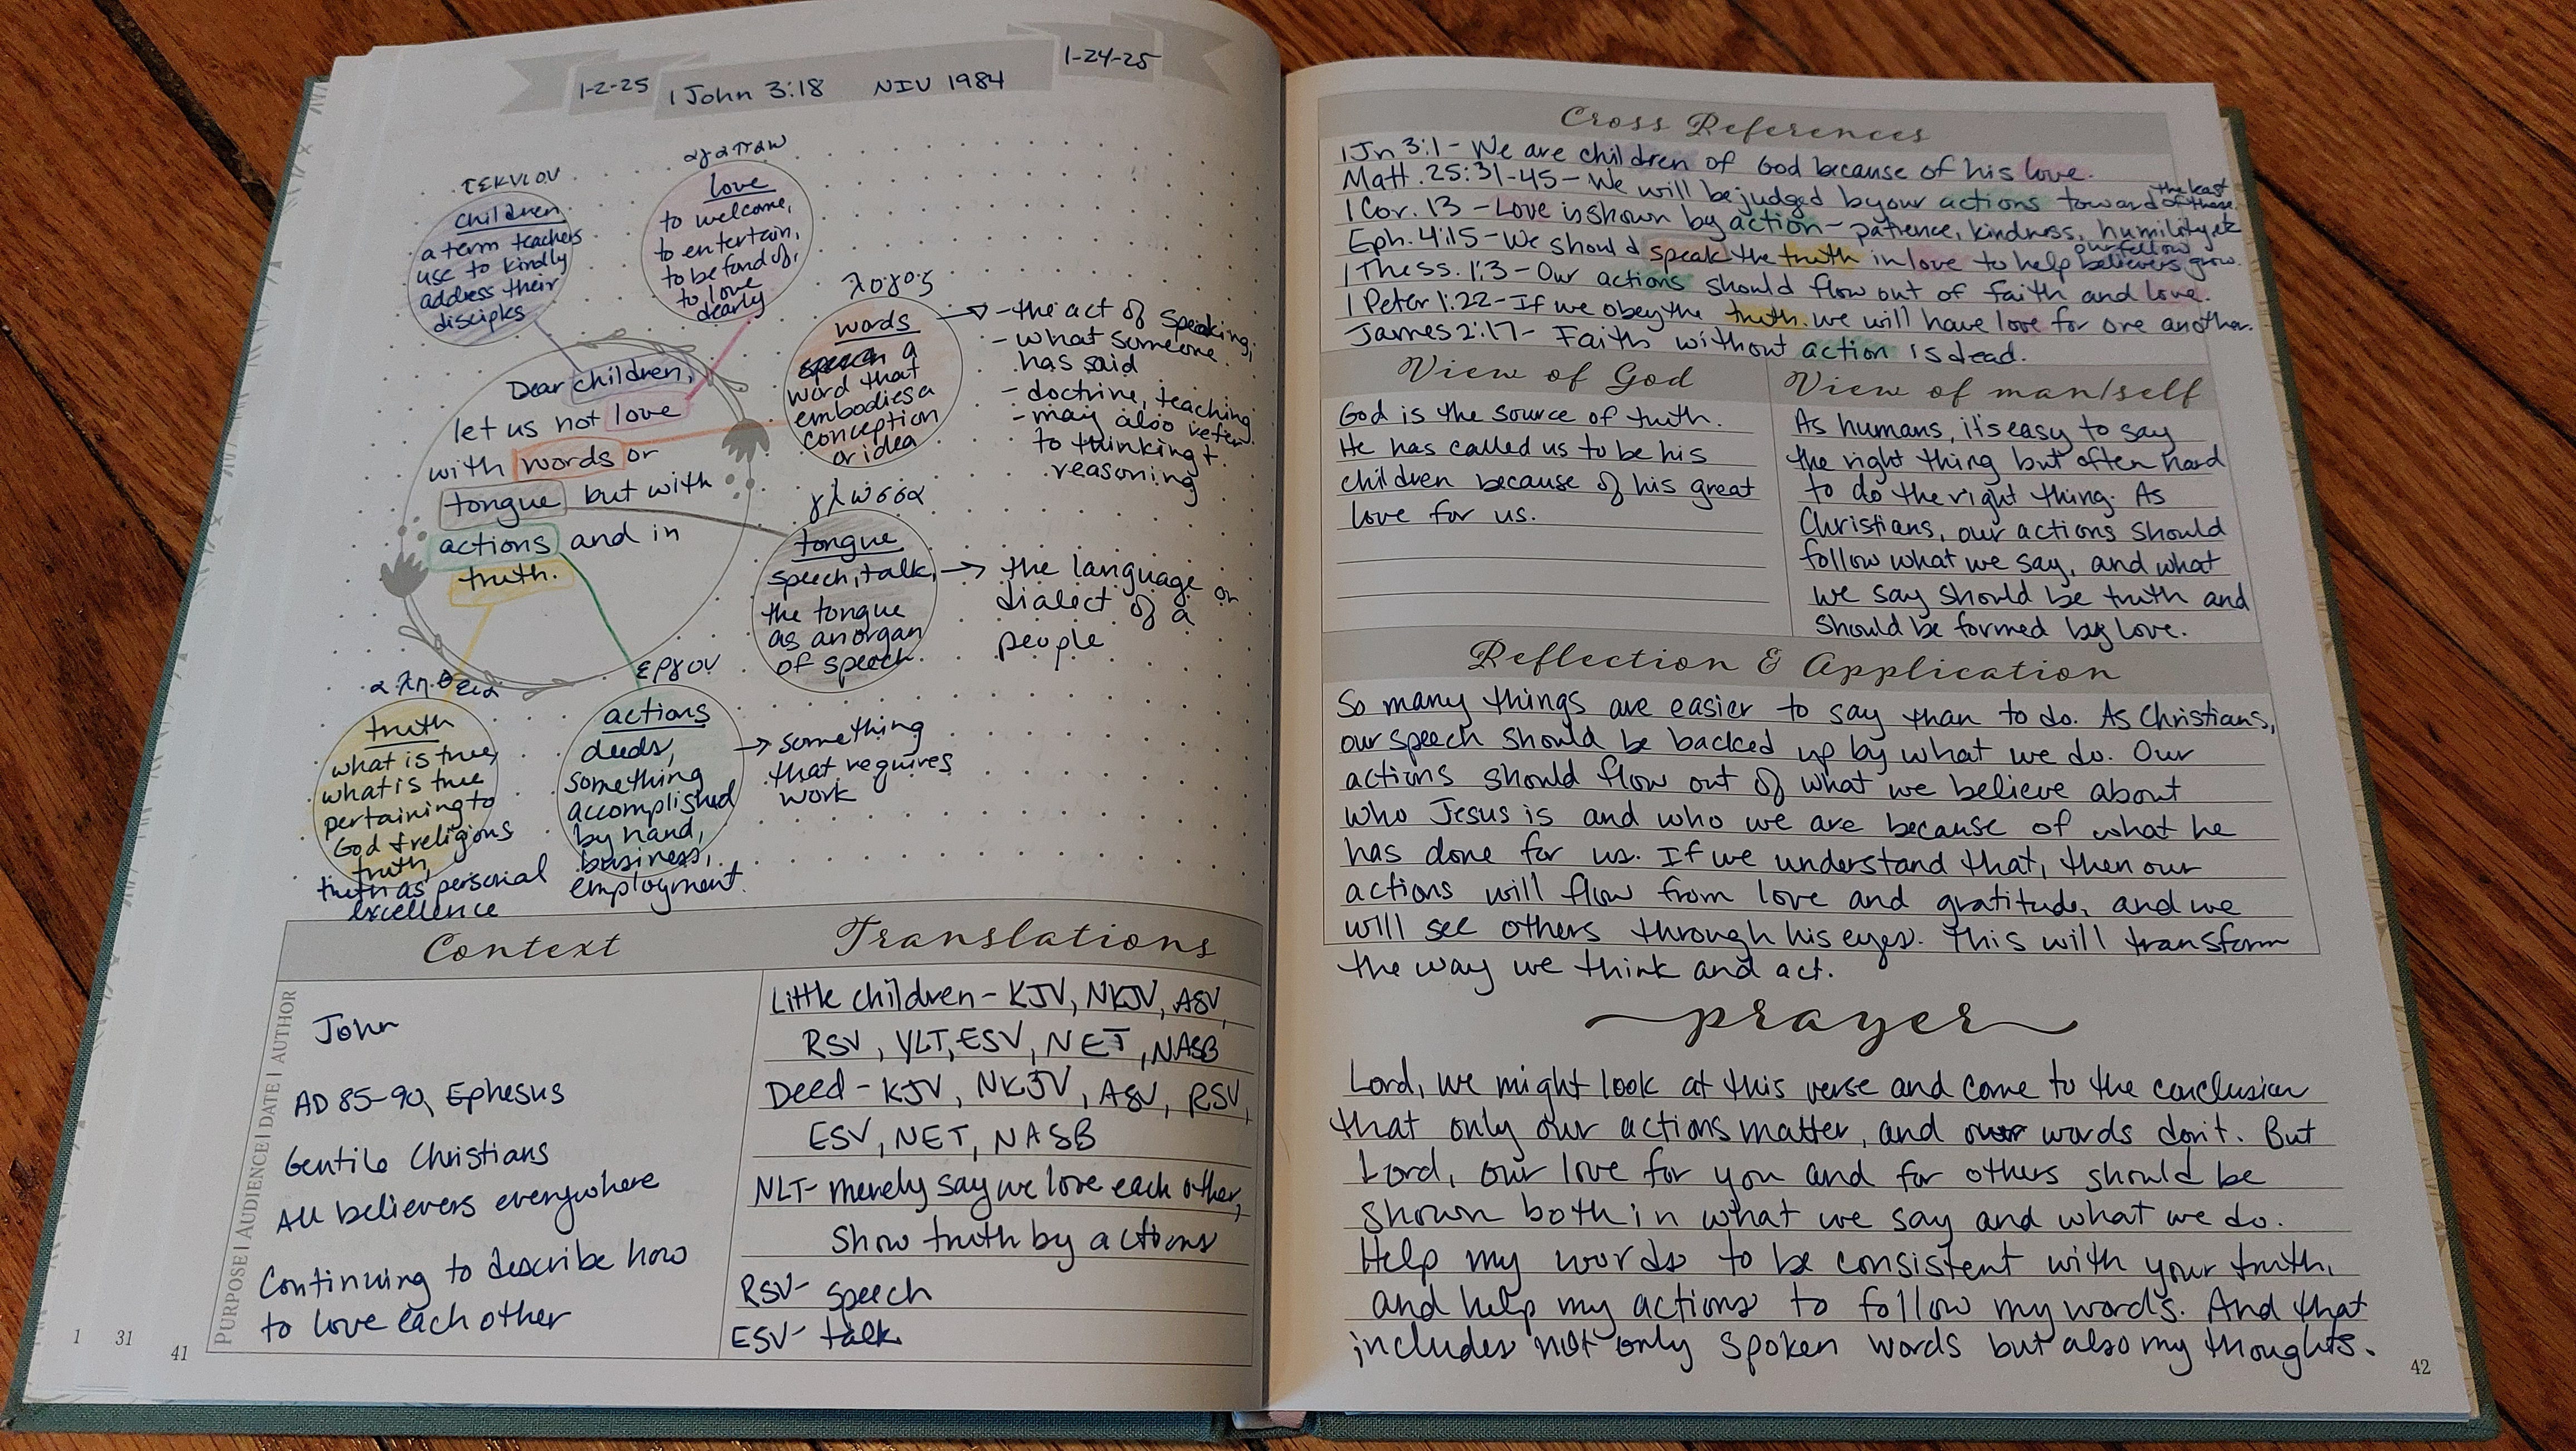 1-2-25
1 John 3:18 NIV 1984
1-24-25
τεκνιον
children
a term teachers
use to kindly
address their
disciples
αγαπαω
love
to welcome,
to entertain,
to be fond of,
to love
dearly
λογος
words
a
word that
embodies a
conception
or idea
→ - the act of speaking,
- what someone
has said
- doctrine, teaching
- may also refer
to thinking +
reasoning
Dear children,
let us not love
with words or
tongue but with
actions and in
truth.
γλωσσα
tongue
speech, talk,
the tongue
as an organ
of speech
→ the language or
dialect of a
people
αληθεια
truth
what is true,
what is true
pertaining to
God + religious
truth,
truth as personal
excellence
εργον
actions
deeds,
something
accomplished
by hand,
business,
employment.
→ something
that requires
work
Context
PURPOSE | AUDIENCE | DATE | AUTHOR
John
AD 85-90, Ephesus
Gentile Christians
All believers everywhere
Continuing to describe how
to love each other
Translations
Little children - KJV, NKJV, ASV,
RSV, YLT, ESV, NET, NASB
Deed - KJV, NKJV, ASV, RSV,
ESV, NET, NASB
NLT- merely say we love each other,
show truth by actions
RSV- speech
ESV- talk
1 31 41
Cross References
1 Jn 3:1 - We are children of God because of his love.
Matt. 25:31-45 - We will be judged by our actions toward the least of these.
1 Cor. 13 - Love is shown by action - patience, kindness, humility, etc
Eph. 4:15 - We should speak the truth in love to help our fellow believers grow.
1 Thess. 1:3 - Our actions should flow out of faith and love.
1 Peter 1:22 - If we obey the truth we will have love for one another.
James 2:17 - Faith without action is dead.
View of God
God is the source of truth.
He has called us to be his
children because of his great
love for us.
View of man/self
As humans, it's easy to say
the right thing but often hard
to do the right thing. As
Christians, our actions should
follow what we say, and what
we say should be truth and
should be formed by love.
Reflection & Application
So many things are easier to say than to do. As Christians,
our speech should be backed up by what we do. Our
actions should flow out of what we believe about
who Jesus is and who we are because of what he
has done for us. If we understand that, then our
actions will flow from love and gratitude, and we
will see others through his eyes. This will transform
the way we think and act.
prayer
Lord, we might look at this verse and come to the conclusion
that only our actions matter, and our words don't. But
Lord, our love for you and for others should be
shown both in what we say and what we do.
Help my words to be consistent with your truth,
and help my actions to follow my words. And that
includes not only spoken words but also my thoughts.
42